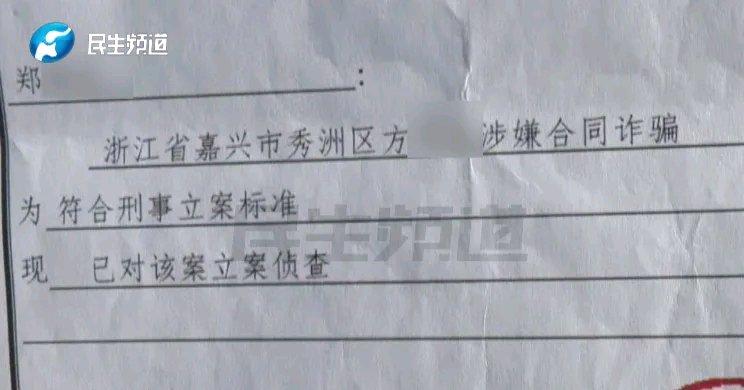 民生频道
郑 :
浙江省嘉兴市秀洲区方 涉嫌合同诈骗
为 符合刑事立案标准
民生频道
现 已对该案立案侦查